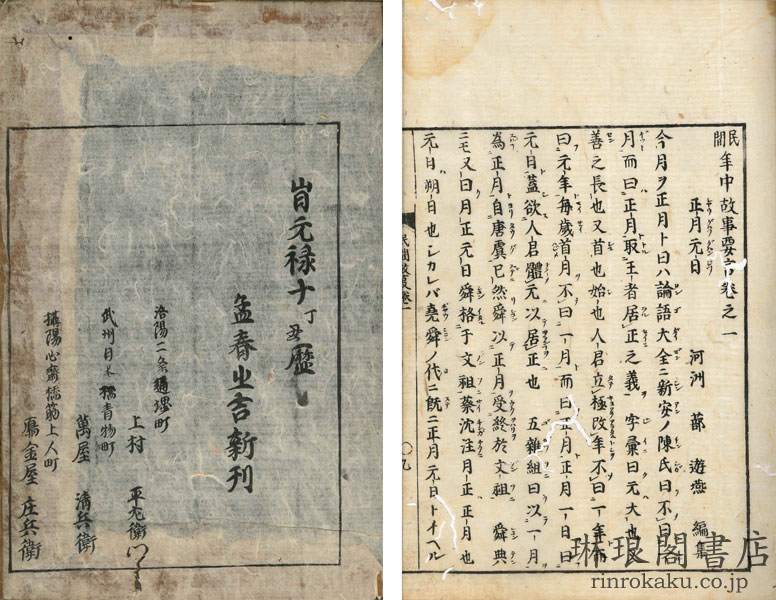 民間年中故事要言巻之一
正月元日 河洲 蔀 遊燕 編集
今月ヲ正月ト曰ハ論語大全ニ新安ノ陳氏曰不曰一
月而曰正月取王者居正之義 字彙曰元大也又
善之長也又首也始也人君立極改年不曰一年而
曰元年毎歳首月不曰一月而曰正月正月一日曰
元日蓋欲人君體元以居正也 五雜組曰以一月
為正月自唐虞已然舜以正月受終於文祖 舜典
ニモ又曰月正元日舜格于文祖蔡沈注月正正月也
元日朔日也シカレバ堯舜ノ代ニ既ニ正月元日トイヘル
旹元禄十丁丑暦
孟春之吉新刊
洛陽二条通堺町
上村 平左衛門
武州日本橋青物町
萬屋 清兵衛
攝陽心齋橋筋上人町
鴈金屋 庄兵衛
琳琅閣書店
rinrokaku.co.jp